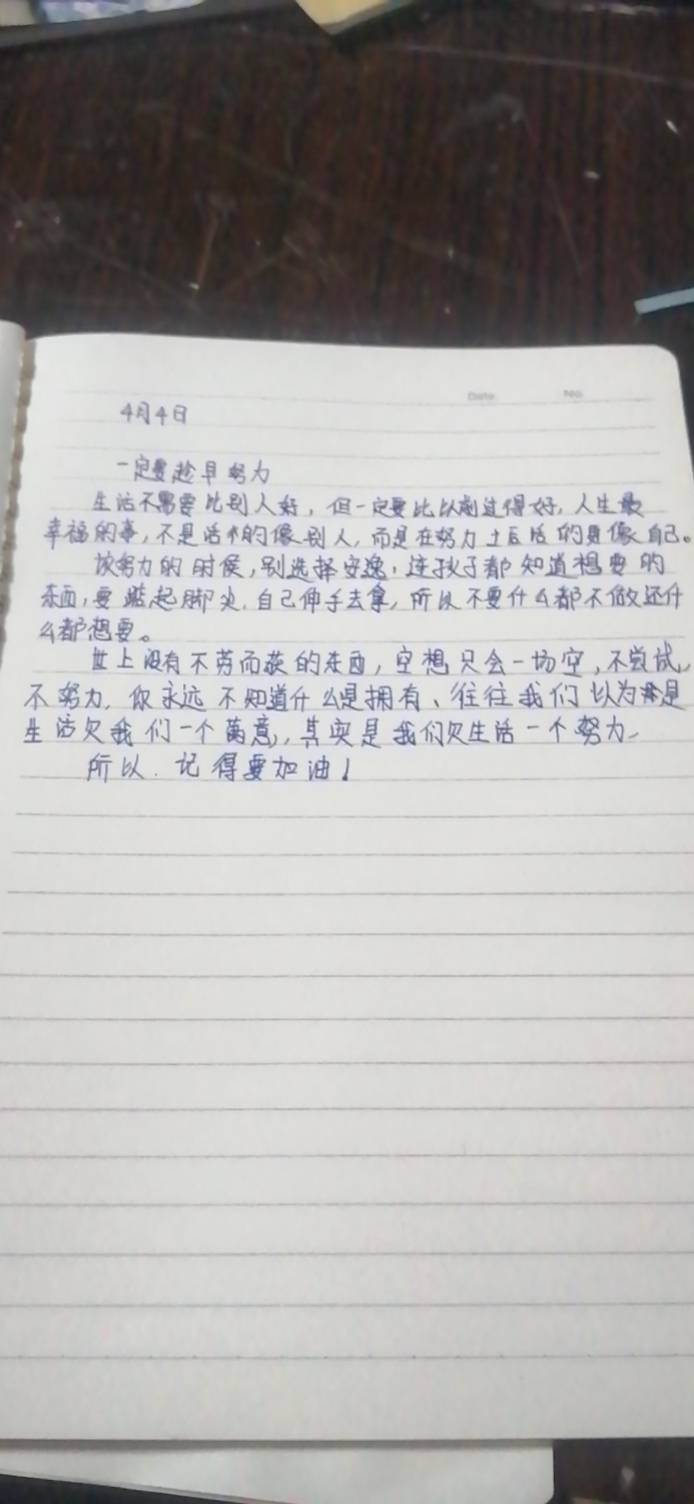 Date No.
4月4日
一定要趁早努力
生活不需要比别人好，但一定要比以前过得好，人生最
幸福的事，不是活的像别人，而是在努力之后活的更像自己。
该努力的时候，别选择安逸，连孩子都知道想要的
东西，要踮起脚尖，自己伸手去拿，所以不要什么都不做还什
么都想要。
世上没有不劳而获的东西，空想只会一场空，不尝试，
不努力，你永远不知道什么是拥有、往往我们以为是
生活欠我们一个满意，其实是我们欠生活一个努力。
所以．记得要加油！